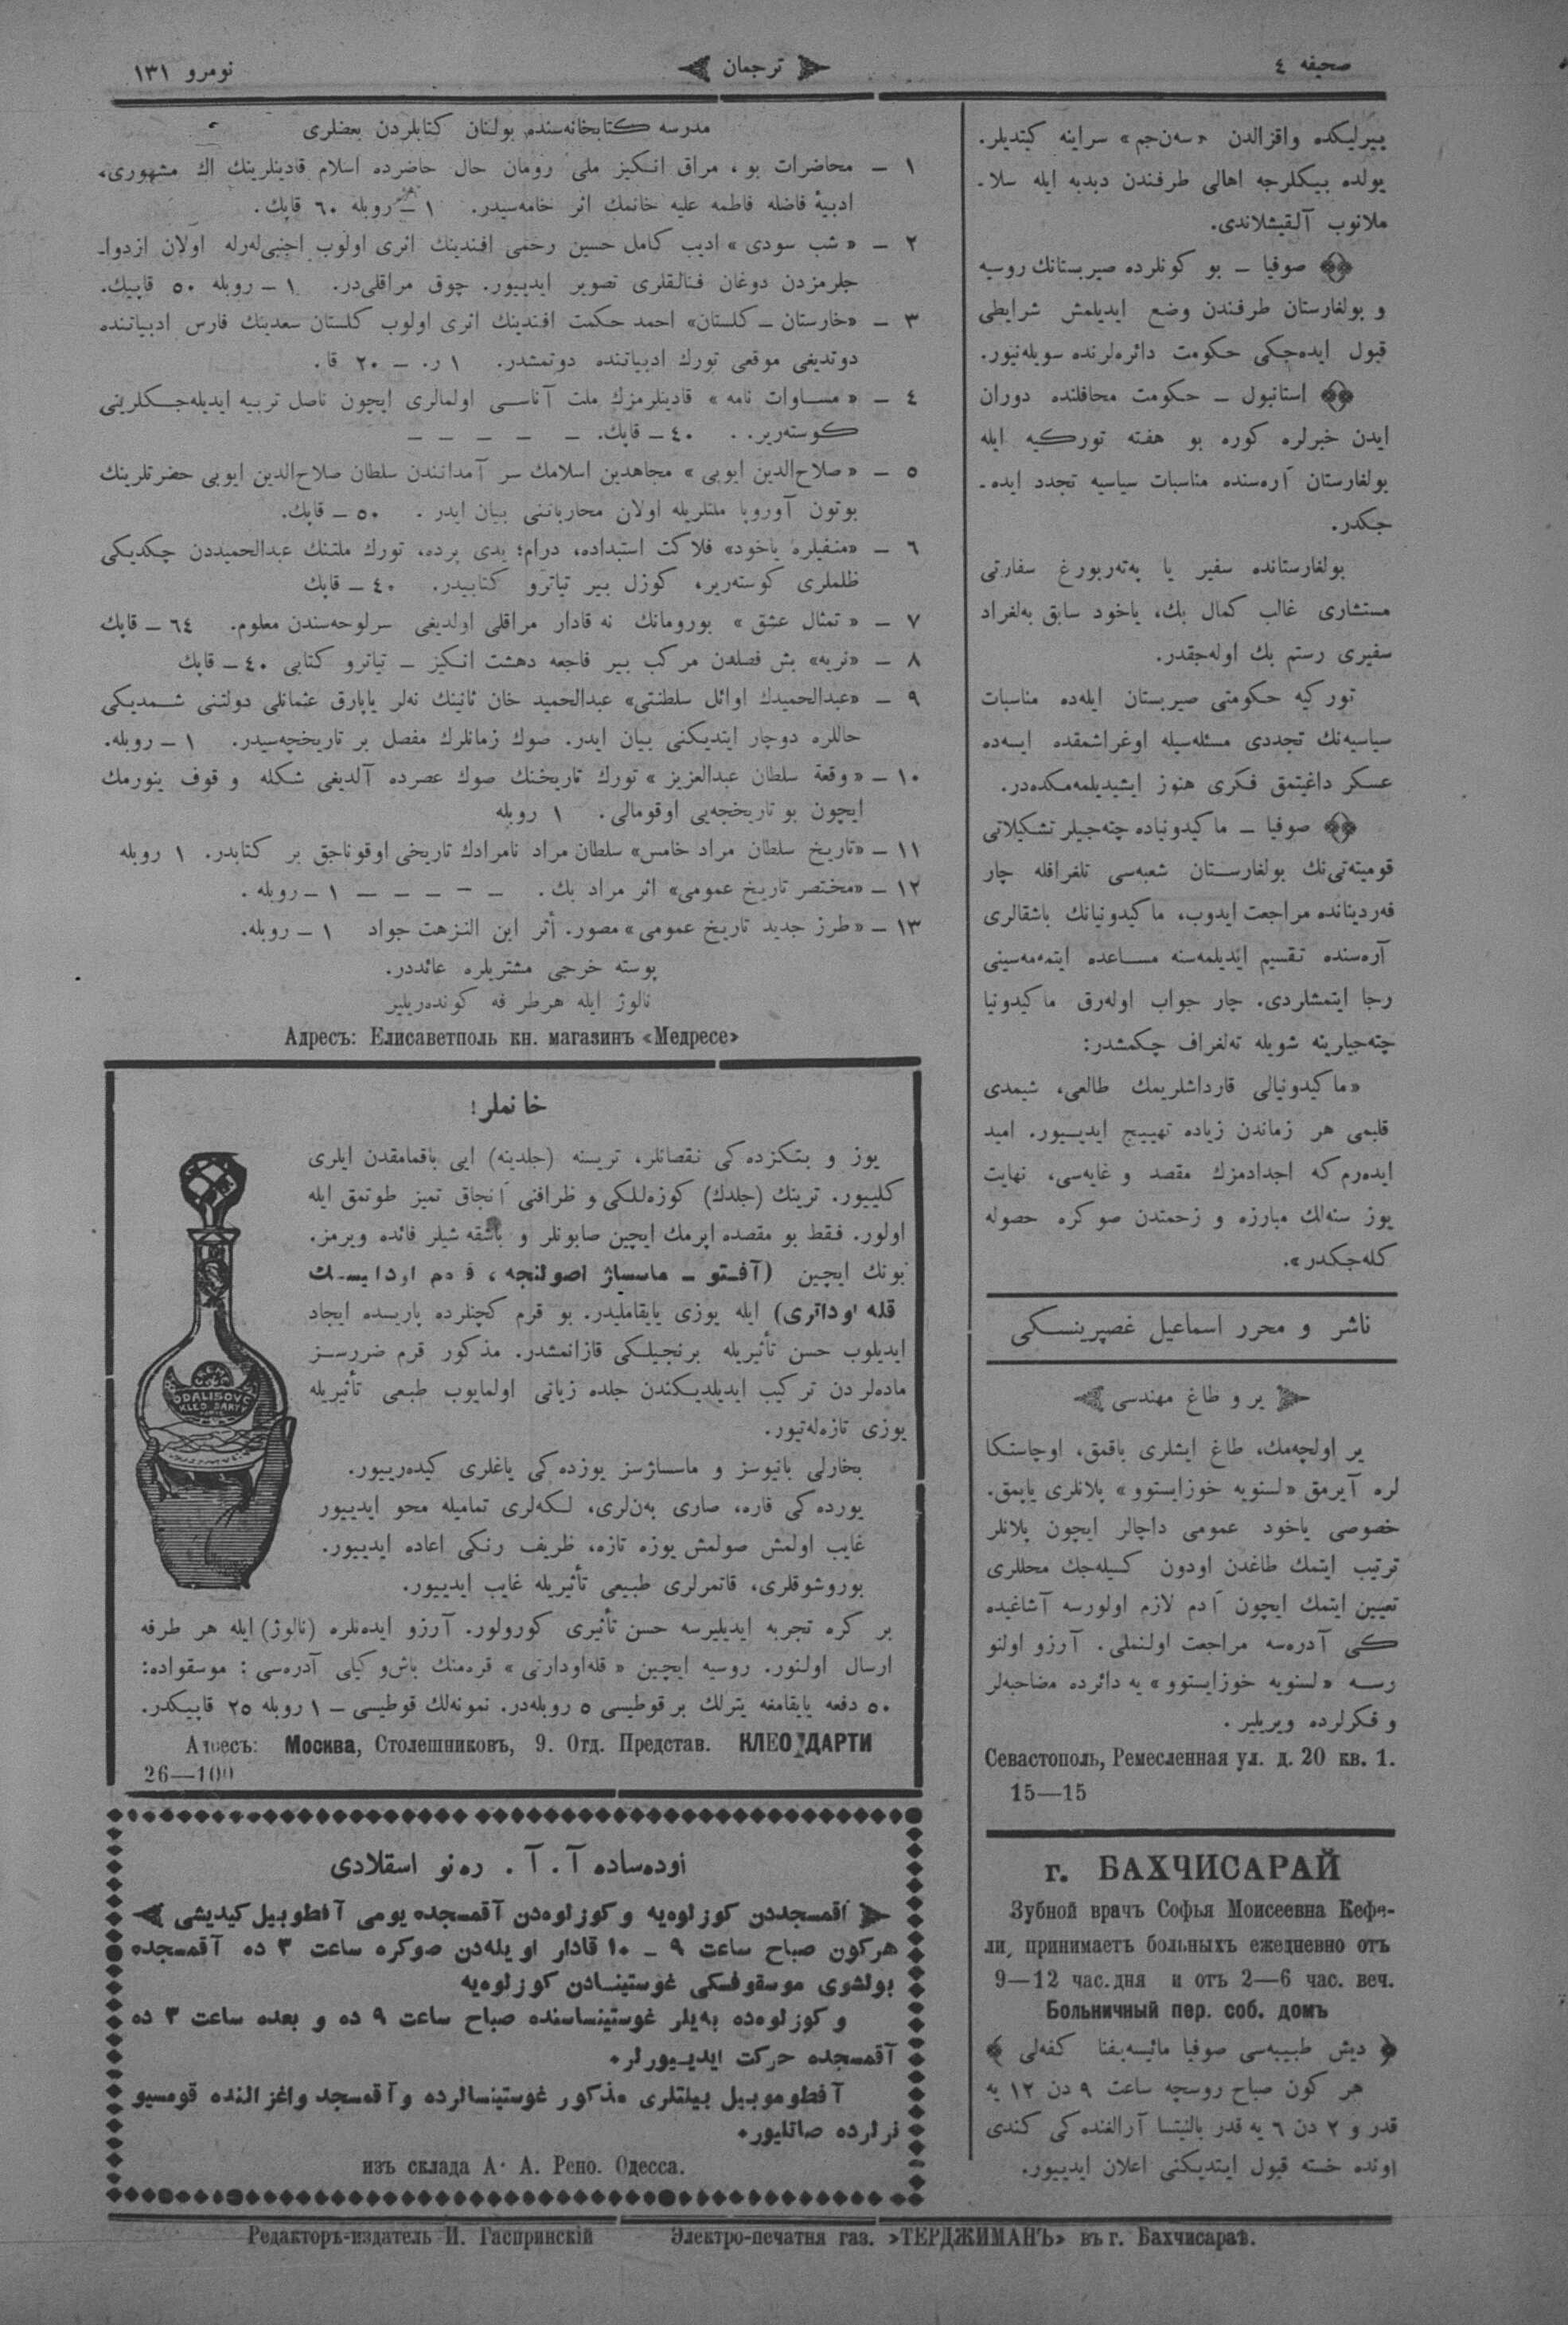 صحیفه ٤
ترجمان
نومرو ١٣١
بیرلیكده واقزالدن «سەن‌جم» سراینه كیتدیلر.
یولده بیكلرجه اهالی طرفندن دبدبه ایله سلا۔
ملانوب آلقیشلاندی.
صوفیا ـ بو كونلرده صیربستانك روسیه
و بولغارستان طرفندن وضع ایدیلمش شرایطی
قبول ایده‌جكی حكومت دائره‌لرنده سویله‌نیور.
استانبول ـ حكومت محافلنده دوران
ایدن خبرلره كوره بو هفته توركیه ایله
بولغارستان آره‌سنده مناسبات سیاسیه تجدد ایده۔
جكدر.
بولغارستانده سفیر یا په‌ته‌ربورغ سفارتی
مستشاری غالب كمال بك، یاخود سابق به‌لغراد
سفیری رستم بك اوله‌جقدر.
توركیه حكومتی صیربستان ایله‌ده مناسبات
سیاسیه‌نك تجددی مسئله‌سیله اوغراشمقده ایسه‌ده
عسكر داغیتمق فكری هنوز ایشیدیلمه‌مكده‌در.
صوفیا ـ ماكیدونیاده چته‌جیلر تشكیلاتی
قومیته‌تی‌نك بولغارستان شعبه‌سی تلغرافله چار
فه‌ردیناندە مراجعت ایدوب، ماكیدونیانك باشقالری
آره‌سنده تقسیم ایدیلمه‌سنه مساعده ایتمه‌مه‌سینی
رجا ایتمشلردی. چار جواب اوله‌رق ماكیدونیا
چته‌جیلرینه شویله ته‌لغراف چكمشدر:
«ماكیدونیالی قارداشلریمك طالعی، شیمدی
قلبمی هر زماندن زیاده تهییج ایدییور. امید
ایده‌رم كه اجدادمزك مقصد و غایه‌سی، نهایت
یوز سنه‌لك مبارزه و زحمتدن صوكره حصوله
كله‌جكدر».
ناشر و محرر اسماعیل غصپرینسكی
یر و طاغ مهندسی
یر اولچه‌مك، طاغ ایشلری باقمق، اوچاستكا
لره آیرمق «لسنویه خوزایستوو» پلانلری یاپمق.
خصوصی یاخود عمومی داچالر ایچون پلانلر
ترتیب ایتمك طاغدن اودون كسیله‌جك محللری
تعیین ایتمك ایچون آدم لازم اولورسه آشاغیده
كی آدره‌سه مراجعت اولنملی. آرزو اولنو
رسه «لسنویه خوزایستوو» یه دائرده مصاحبه‌لر
و فكرلرده ویریلیر.
Севастополь, Ремесленная ул. д. 20 кв. 1.
15—15
г. БАХЧИСАРАЙ
Зубной врачъ Софья Моисеевна Кефе-
ли, принимаетъ больныхъ ежедневно отъ
9—12 час. дня и отъ 2—6 час. веч.
Больничный пер. соб. домъ
دیش طبیبه‌سی صوفیا مائیسه‌یفنا كفه‌لی
هر كون صباح روسچه ساعت ٩ دن ١٢ یه
قدر و ٢ دن ٦ یه قدر بالنیتسا آرالغنده‌كی كندی
اونده خسته قبول ایتدیكنی اعلان ایدییور.
مدرسه كتابخانه‌سنده بولنان كتابلردن بعضلری
١ ـ محاضرات بو، مراق انكیز ملی رومان حال حاضرده اسلام قادینلرینك اك مشهوری،
ادبیۀ فاضله فاطمه علیه خانمك اثر خامه‌سیدر. ١ ـ روبله ٦٠ قاپك.
٢ ـ «شب سودی» ادیب كامل حسین رحمی افندینك اثری اولوب اجنبی‌لەرله اولان ازدوا۔
جلرمزدن دوغان فنالقلری تصویر ایدییور. چوق مراقلی‌در. ١ ـ روبله ٥٠ قاپیك.
٣ ـ «خارستان ـ كلستان» احمد حكمت افندینك اثری اولوب كلستان سعدینك فارس ادبیاتنده
دوتدیغی موقعی تورك ادبیاتنده دوتمشدر. ١ ر. ـ ٢٠ قا.
٤ ـ «مساوات نامه» قادینلرمزك ملت آناسی اولمالری ایچون ناصل تربیه ایدیله‌جكلرینی
كوسته‌ریر. . ٤٠ ـ قاپك. ـ ـ ـ ـ ـ
٥ ـ «صلاح‌الدین ایوبی» مجاهدین اسلامك سر آمداندن سلطان صلاح‌الدین ایوبی حضرتلرینك
بوتون آوروپا ملتلریله اولان محارباتنی بیان ایدر. ٥٠ ـ قاپك.
٦ ـ «منفیلره یاخود» فلاكت استبداده، درام؛ یدی پرده، تورك ملتنك عبدالحمیددن چكدیكی
ظلملری كوسته‌ریر، كوزل بیر تیاترو كتابیدر. ٤٠ ـ قاپك
٧ ـ «تمثال عشق» بورومانك نه قادار مراقلی اولدیغی سرلوحه‌سندن معلوم. ٦٤ ـ قاپك
٨ ـ «نربه» بش فصلدن مركب بیر فاجعه دهشت انكیز ـ تیاترو كتابی ٤٠ ـ قاپك
٩ ـ «عبدالحمیدك اوائل سلطنتی» عبدالحمید خان ثانینك نه‌لر یاپارق عثمانلی دولتنی شمدیكی
حاللره دوچار ایتدیكنی بیان ایدر. صوك زمانلرك مفصل بر تاریخچه‌سیدر. ١ ـ روبله.
١٠ ـ «وقعۀ سلطان عبدالعزیز» تورك تاریخنك صوك عصرده آلدیغی شكله و قوف ینورمك
ایچون بو تاریخجه‌یی اوقومالی. ١ روبله
١١ ـ «تاریخ سلطان مراد خامس» سلطان مراد نامرادك تاریخی اوقوناجق بر كتابدر. ١ روبله
١٢ ـ «مختصر تاریخ عمومی» اثر مراد بك. ـ ـ ـ ـ ـ ١ ـ روبله.
١٣ ـ «طرز جدید تاریخ عمومی» مصور. أثر ابن النزهت جواد ١ ـ روبله.
پوسته خرجی مشتریلره عائددر.
نالوژ ایله هرطرفه كونده‌ریلیر
Адресъ: Елисаветполь кн. магазинъ «Медресе»
خانملر!
یوز و بتكزده‌كی نقصانلر، تریسنه (جلدینه) ایی باقمامقدن ایلری
كلییور. ترینك (جلدك) كوزه‌للكی و ظرافنی آنجاق تمیز طوتمق ایله
اولور. فقط بو مقصده اپرمك ایچین صابونلر و باشقه شیلر فائده ویرمز.
بونك ایچین (آفتو ـ ماسساژ اصولنجه،
قله اوداتری) ایله یوزی یایقاملیدر. بو قرم كچنلرده پاریسده ایجاد
ایدیلوب حسن تأثیریله برنجیلكی قازانمشدر. مذكور قرم ضررسز
ماده‌لردن تركیب ایدیلدیكندن جلده زیانی اولمایوب طبعی تأثیریله
یوزی تازه‌له‌تیور.
بخارلی بانیوسز و ماسساژسز یوزده‌كی یاغلری كیده‌رییور.
یوردە‌كی قاره، صاری به‌ن‌لری، لكه‌لری تمامیله محو ایدییور
غایب اولمش صولمش یوزه تازه، ظریف رنكی اعاده ایدییور.
بوروشوقلری، قاتمرلری طبیعی تأثیریله غایب ایدییور.
بر كره تجربه ایدیلیرسه حسن تأثیری كورولور. آرزو ایده‌نلره (نالوژ) ایله هر طرفه
ارسال اولنور. روسیه ایچین «قله‌اودارتی» قره‌منك باش‌وكیلی آدره‌سی: موسقواده:
٥٠ دفعه یایقامغه یترلك بر قوطیسی ٥ روبله‌در. نمونه‌لك قوطیسی ـ ١ روبله ٢٥ قاپیكدر.
ODALISQVE
KLEO DARTY
Адресъ: Москва, Столешниковъ, 9. Отд. Представ. КЛЕО ДАРТИ
26—100
اوده‌ساده آ. آ. ره‌نو اسقلادی
آقمسجددن كوزلوه‌یه و كوزلوه‌دن آقمسجده یومی آفطوبیل كیدیشی
هركون صباح ساعت ٩ ـ ١٠ قادار اویله‌دن صوكره ساعت ٣ ده آقمسجده
بولشوی موسقوفسكی غوستینسادن كوزلوه‌یه
و كوزلوه‌ده به‌یلر غوستینساسنده صباح ساعت ٩ ده و بعده ساعت ٣ ده
آقمسجده حركت ایدییورلر.
آفطوموبیل بیلتلری مذكور غوستینسالرده و آقمسجد واغزالنده قومسیو
نرلرده صاتلیور.
изъ склада А. А. Рено. Одесса.
Редакторъ-издатель И. Гаспринскій
Электро-печатня газ. »ТЕРДЖИМАНЪ» въ г. Бахчисараѣ.